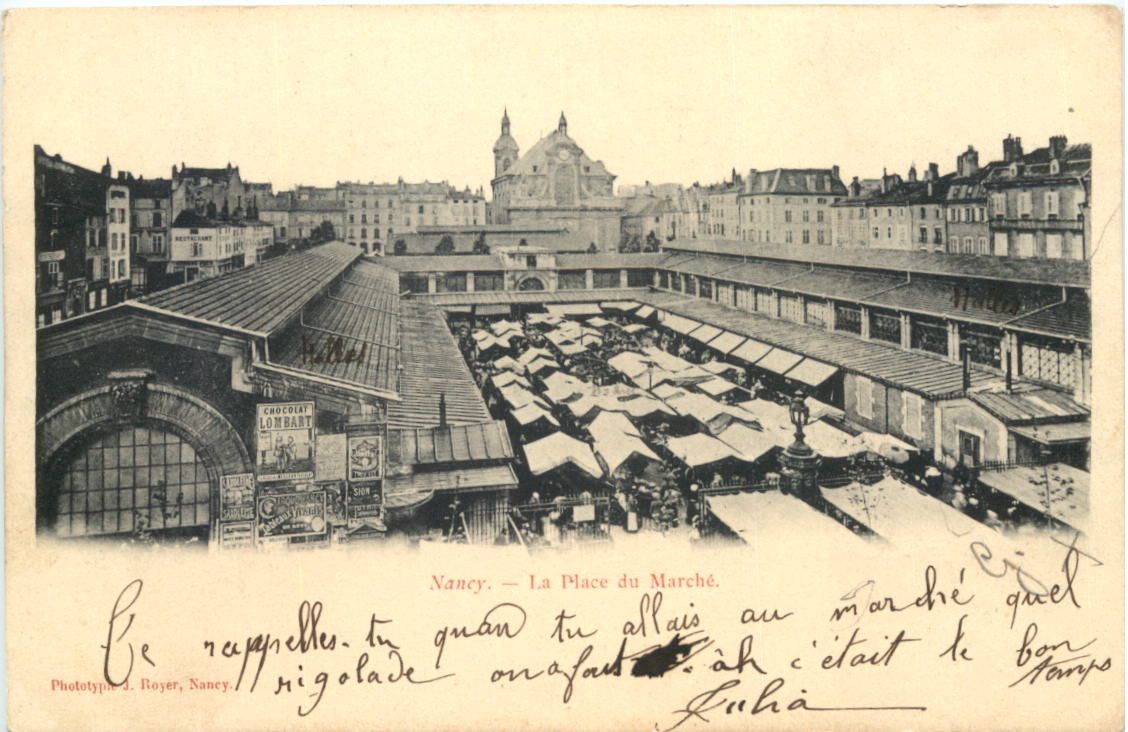 RESTAURANT
Halles
Halles
CHOCOLAT
LOMBART
SION
Nancy. — La Place du Marché.
Te rappelles-tu quand tu allais au marché quel
rigolade on a fait ah c'était le bon
temps
Julia
Phototypie J. Royer, Nancy.